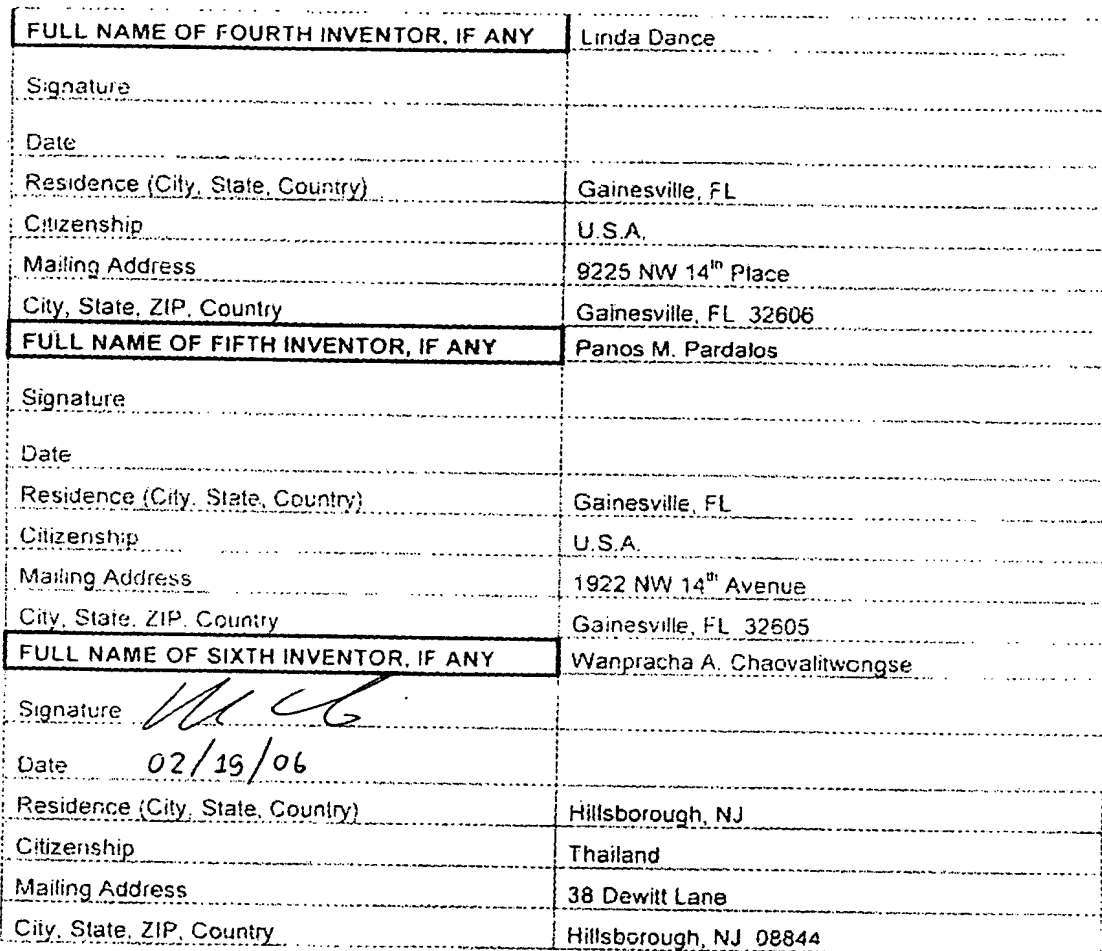 FULL NAME OF FOURTH INVENTOR, IF ANY Linda Dance
Signature
Date
Residence (City, State, Country) Gainesville, FL
Citizenship U.S.A.
Mailing Address 9225 NW 14th Place
City, State, ZIP, Country Gainesville, FL 32606
FULL NAME OF FIFTH INVENTOR, IF ANY Panos M. Pardalos
Signature
Date
Residence (City, State, Country) Gainesville, FL
Citizenship U.S.A.
Mailing Address 1922 NW 14th Avenue
City, State, ZIP, Country Gainesville, FL 32605
FULL NAME OF SIXTH INVENTOR, IF ANY Wanpracha A. Chaovalitwongse
Signature
Date 02/19/06
Residence (City, State, Country) Hillsborough, NJ
Citizenship Thailand
Mailing Address 38 Dewitt Lane
City, State, ZIP, Country Hillsborough, NJ 08844